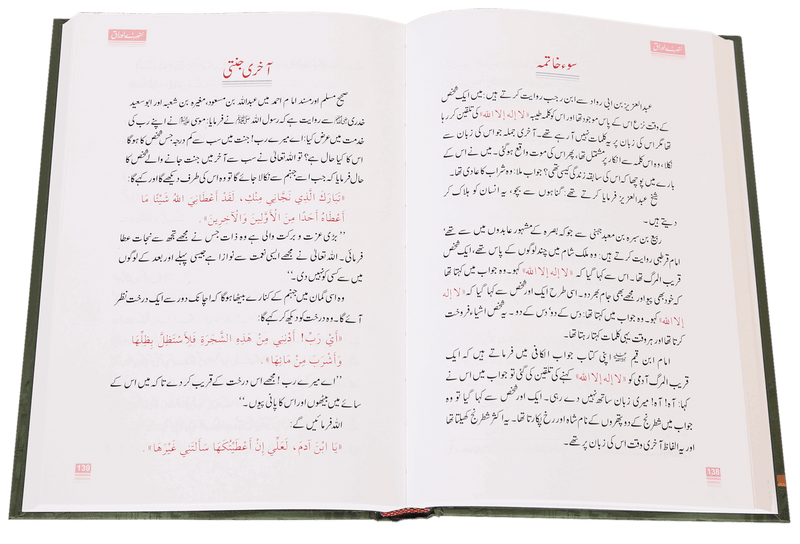 سنہرے اوراق
سوء خاتمہ
عبدالعزیز بن ابی رواد سے ابن رجب روایت کرتے ہیں: میں ایک شخص
کے وقت نزع اس کے پاس موجود تھا اور اس کو کلمہ طیبہ «لا إله إلا الله» کی تلقین کر رہا
تھا مگر اس کی زبان پر یہ کلمات نہیں آ رہے تھے۔ آخری جملہ جو اس کی زبان سے
نکلا، وہ اس کلمہ سے انکار پر مشتمل تھا، پھر اس کی موت واقع ہوگئی۔ میں نے اس کے
بارے میں پوچھا کہ اس کی سابقہ زندگی کیسی تھی؟ جواب ملا: وہ شراب کا عادی تھا۔
شیخ عبدالعزیز فرمایا کرتے تھے: گناہوں سے بچو، یہ انسان کو ہلاک کر
دیتے ہیں۔
ربیع بن سبرہ بن معبد جہنی سے جو کہ بصرہ کے مشہور عابدوں میں سے تھے
امام قرطبی روایت کرتے ہیں: وہ ملک شام میں چند لوگوں کے پاس تھے، ایک شخص
قریب المرگ تھا۔ اس سے کہا گیا کہ «لا إله إلا الله» کہو۔ وہ جواب میں کہتا تھا
کہ خود بھی پیو اور مجھے بھی جام بھر دو۔ اسی طرح ایک اور شخص سے کہا گیا کہ «لا إله
إلا الله» کہو۔ وہ جواب میں کہتا تھا: دس کے دو، دس کے دو۔ یہ شخص اشیاء فروخت
کرتا تھا اور ہر وقت یہی کلمات کہتا رہتا تھا۔
امام ابن قیم اپنی کتاب جواب الکافی میں فرماتے ہیں کہ ایک
قریب المرگ آدمی کو «لا إله إلا الله» کہنے کی تلقین کی گئی تو جواب میں اس نے
کہا: آہ! آہ! میری زبان ساتھ نہیں دے رہی۔ ایک اور شخص سے کہا گیا تو وہ
جواب میں شطرنج کے دو پتھروں کے نام شاہ اور رخ پکارتا تھا۔ یہ اکثر شطرنج کھیلتا تھا
اور یہ الفاظ آخری وقت اس کی زبان پر تھے۔
138
سنہرے اوراق
آخری جنتی
صحیح مسلم اور مسند امام احمد میں عبداللہ بن مسعود، مغیرہ بن شعبہ اور ابو سعید
خدری سے روایت ہے کہ رسول اللہ ﷺ نے فرمایا: موسیٰ نے اپنے رب کی
خدمت میں عرض کیا: اے میرے رب! جنت میں سب سے کم درجہ جس شخص کا ہوگا
اس کا کیا حال ہے؟ تو اللہ تعالیٰ نے سب سے آخر میں جنت جانے والے شخص کا
حال فرمایا کہ جب اسے جہنم سے نکالا جائے گا تو وہ اس کی طرف دیکھے گا اور کہے گا:
«تَبَارَكَ الَّذِي نَجَّانِي مِنْكِ، لَقَدْ أَعْطَانِيَ اللهُ شَيْئًا مَا
أَعْطَاهُ أَحَدًا مِنَ الْأَوَّلِينَ وَالْآخِرِينَ».
’’بڑی عزت و برکت والی ہے وہ ذات جس نے مجھے تجھ سے نجات عطا
فرمائی۔ اللہ تعالیٰ نے مجھے ایسی نعمت سے نوازا ہے جیسی پہلے اور بعد کے لوگوں
میں سے کسی کو نہیں دی۔‘‘
وہ اسی گمان میں جہنم کے کنارے بیٹھا ہوگا کہ اچانک دور سے ایک درخت نظر
آئے گا۔ وہ درخت کو دیکھ کر کہے گا:
«أَيْ رَبِّ! أَدْنِنِي مِنْ هَذِهِ الشَّجَرَةِ فَلِأَسْتَظِلَّ بِظِلِّهَا
وَأَشْرَبَ مِنْ مَائِهَا».
’’اے میرے رب! مجھے اس درخت کے قریب کر دے تاکہ میں اس کے
سائے میں بیٹھوں اور اس کا پانی پیوں۔‘‘
اللہ فرمائیں گے:
«يَا ابْنَ آدَمَ، لَعَلِّي إِنْ أَعْطَيْتُكَهَا سَأَلْتَنِي غَيْرَهَا».
139